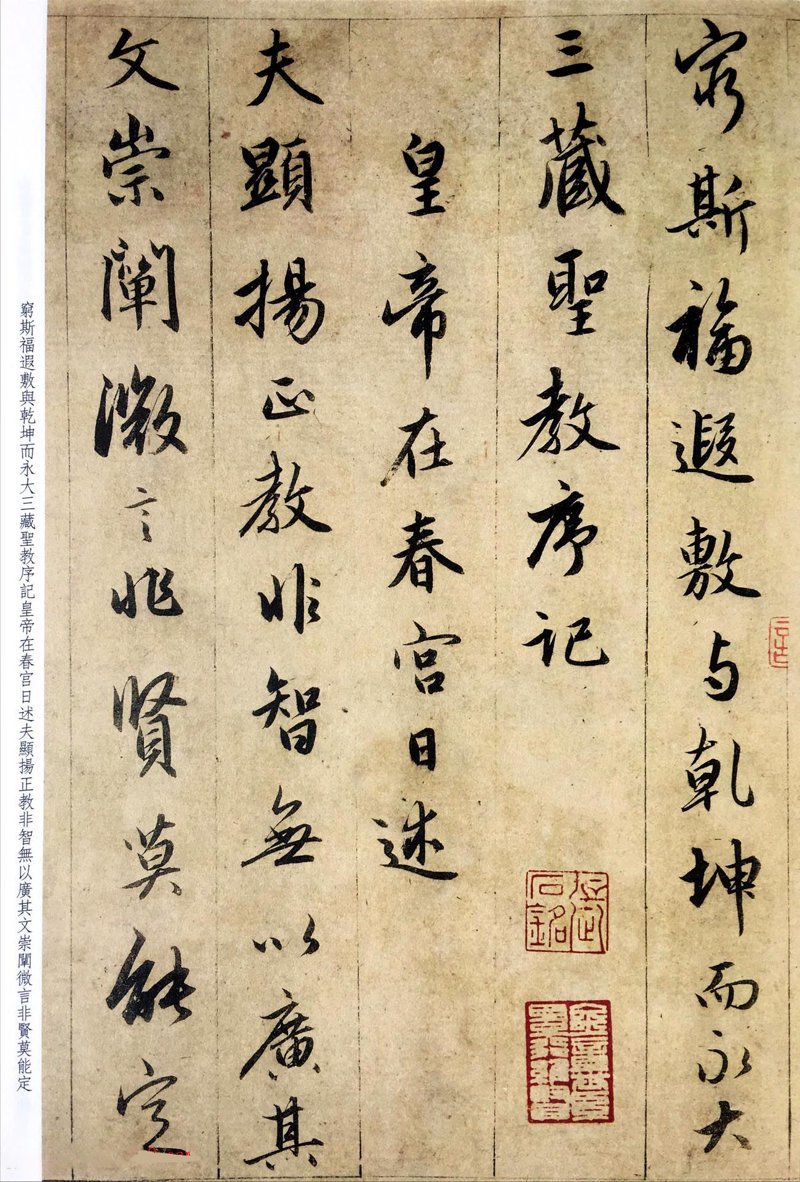 窮斯福遐敷与乾坤而永大
三藏聖教序記
皇帝在春宮日述
夫顯揚正教非智無以廣其
文崇闡微言非賢莫能定
窮斯福遐敷與乾坤而永大三藏聖教序記皇帝在春宮日述夫顯揚正教非智無以廣其文崇闡微言非賢莫能定